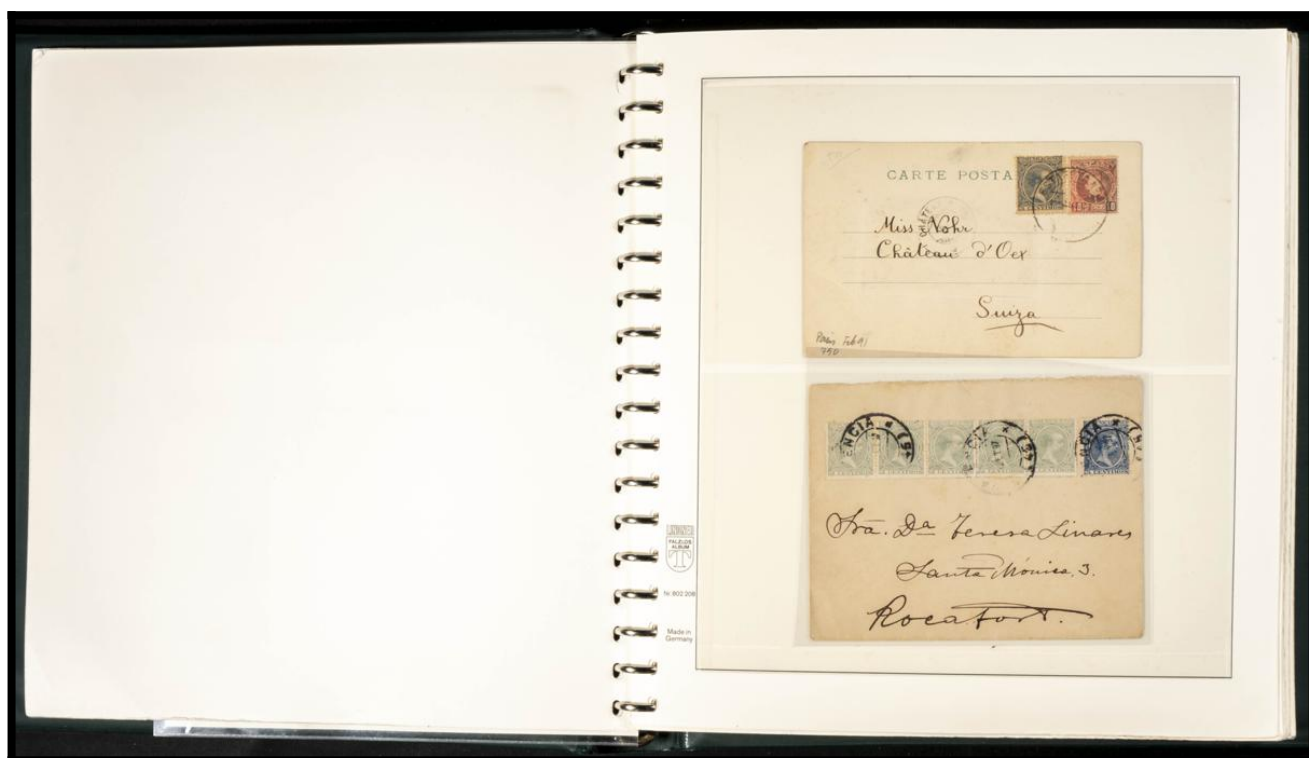 CARTE POSTA
Miss Nohr
Château d'Oex
Suiza
Paris Feb 91
750
ENCIA
Sra. Da Teresa Linares
Santa Mónica, 3.
Rocafort.
LINDNER
FALZLOS
ALBUM
T
Nr. 802 208
Made in
Germany